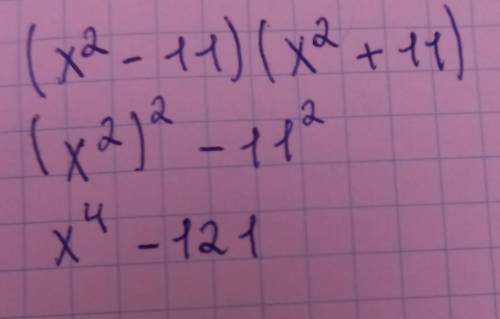 (x² - 11)(x² + 11)
(x²)² - 11²
x⁴ - 121